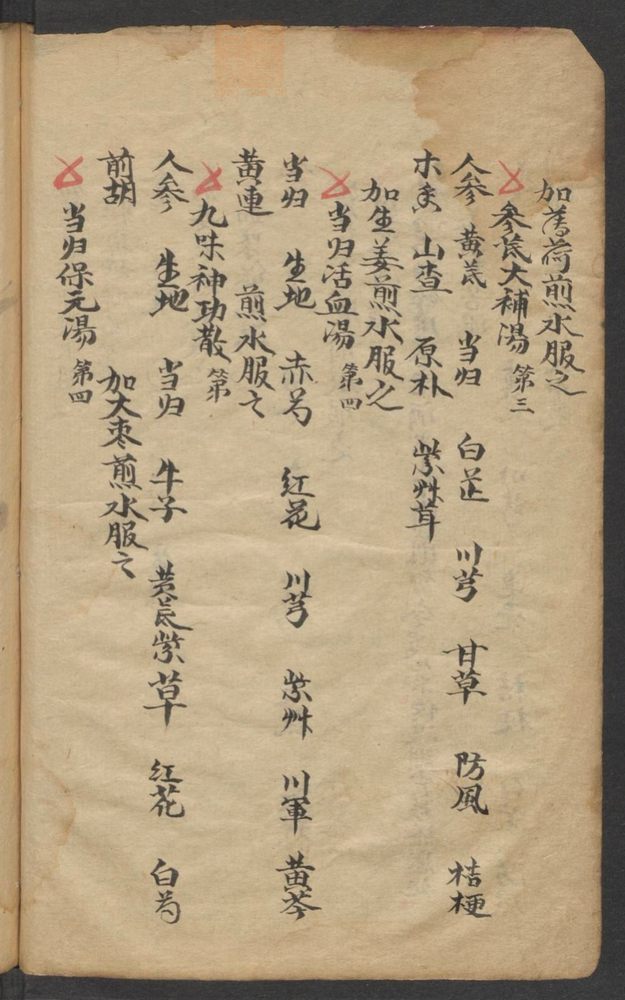 加薄荷煎水服之
參芪大補湯 第三
人參 黃芪 当归 白芷 川芎 甘草 防風 桔梗
木香 山查 原朴 紫艸茸
加生姜煎水服之
当归活血湯 第四
当归 生地 赤芍 紅花 川芎 紫艸 川軍 黃芩
黃連 煎水服之
九味神功散 第
人參 生地 当归 牛子 黃芪 紫草 紅花 白芍
前胡 加大枣煎水服之
当归保元湯 第四